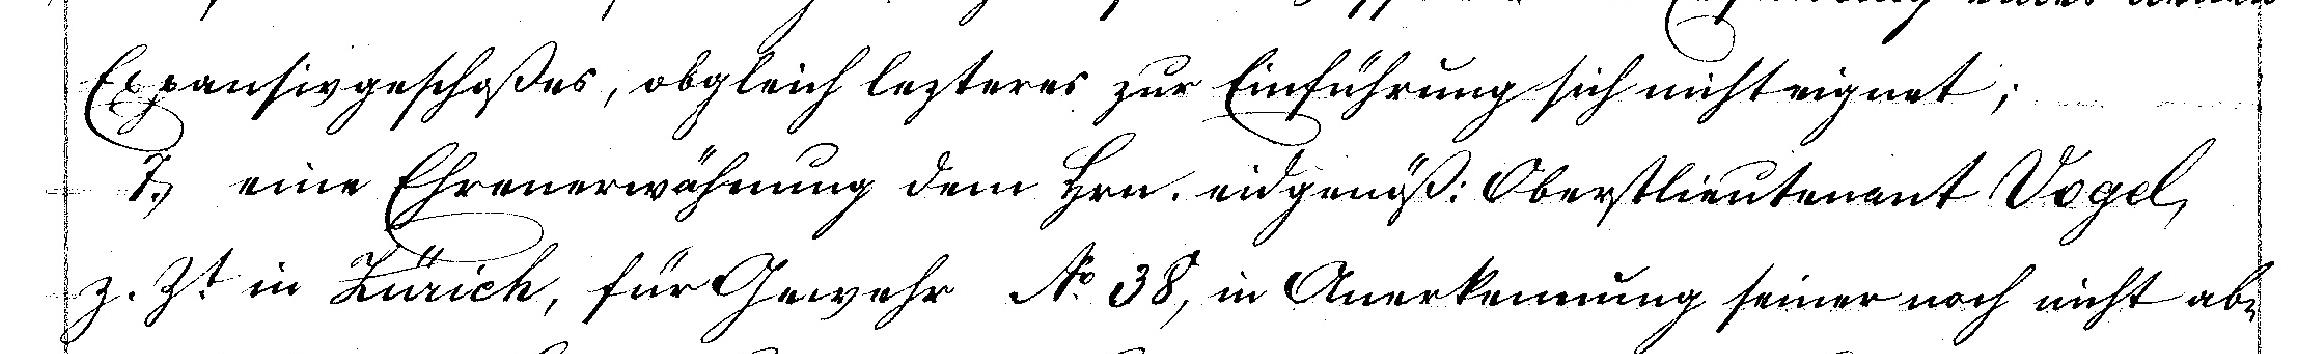 Expansivgeschoßes, obgleich lezteres zur Einführung sich nicht eignet;
7, eine Ehrenerwähnung dem Hrn. eidgenöß: Oberstlieutenant Vogel,
z. Zt in Zürich, für Gewehr No 38, in Anerkennung seiner noch nicht ab-